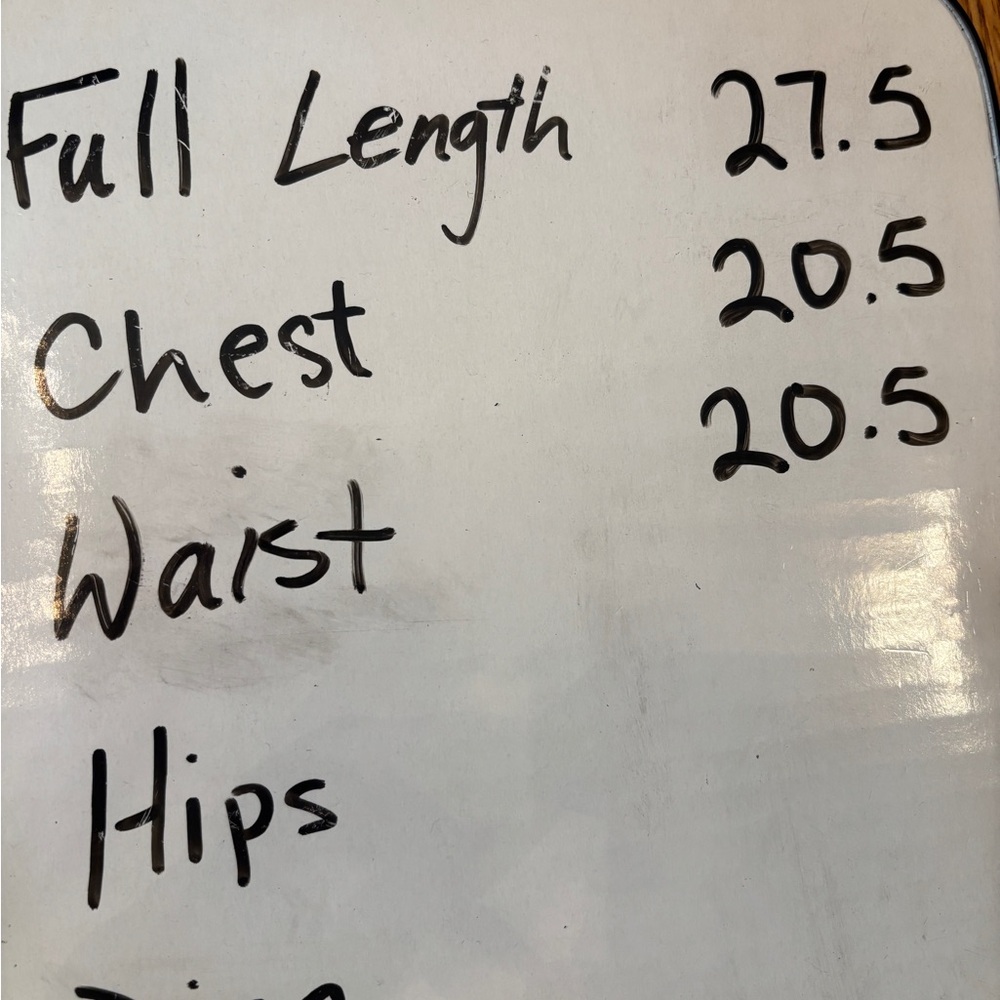 Full Length 27.5
Chest 20.5
Waist 20.5
Hips